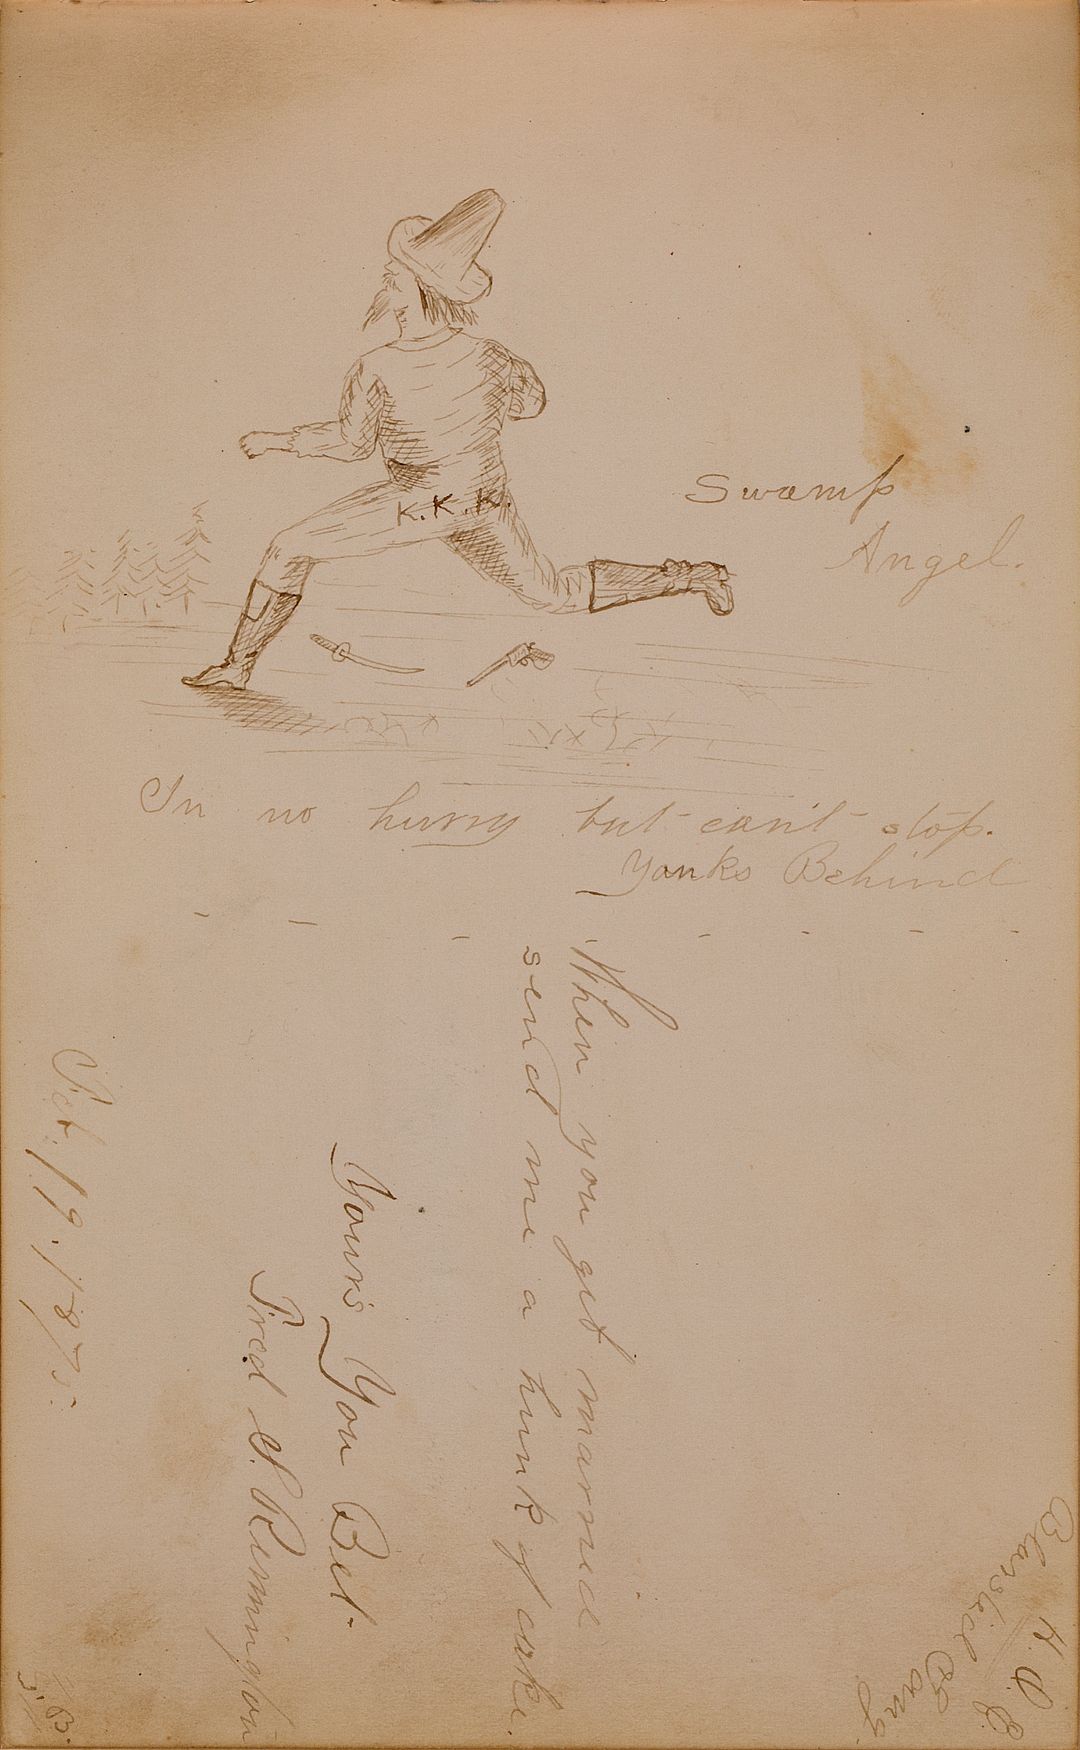 K.K.K.
Swamp
Angel.
In no hurry but can't stop.
Yanks Behind
When you get married
send me a hunk of cake.
Yours You Bet
Fred S. Remington
Feb. 19. 1875.
H. P. C.
Blarsted
Gang.